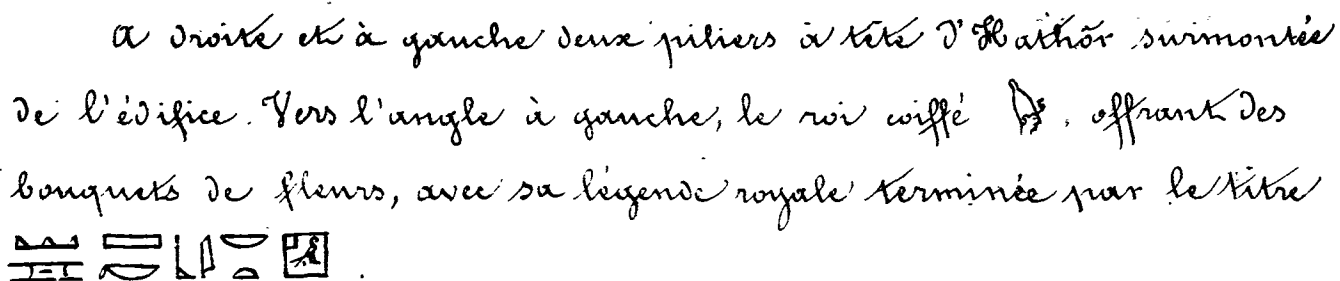 A droite et à gauche deux piliers à tête d'Hathôr surmontée
de l'édifice. Vers l'angle à gauche, le roi coiffé , offrant des
bouquets de fleurs, avec sa légende royale terminée par le titre
.